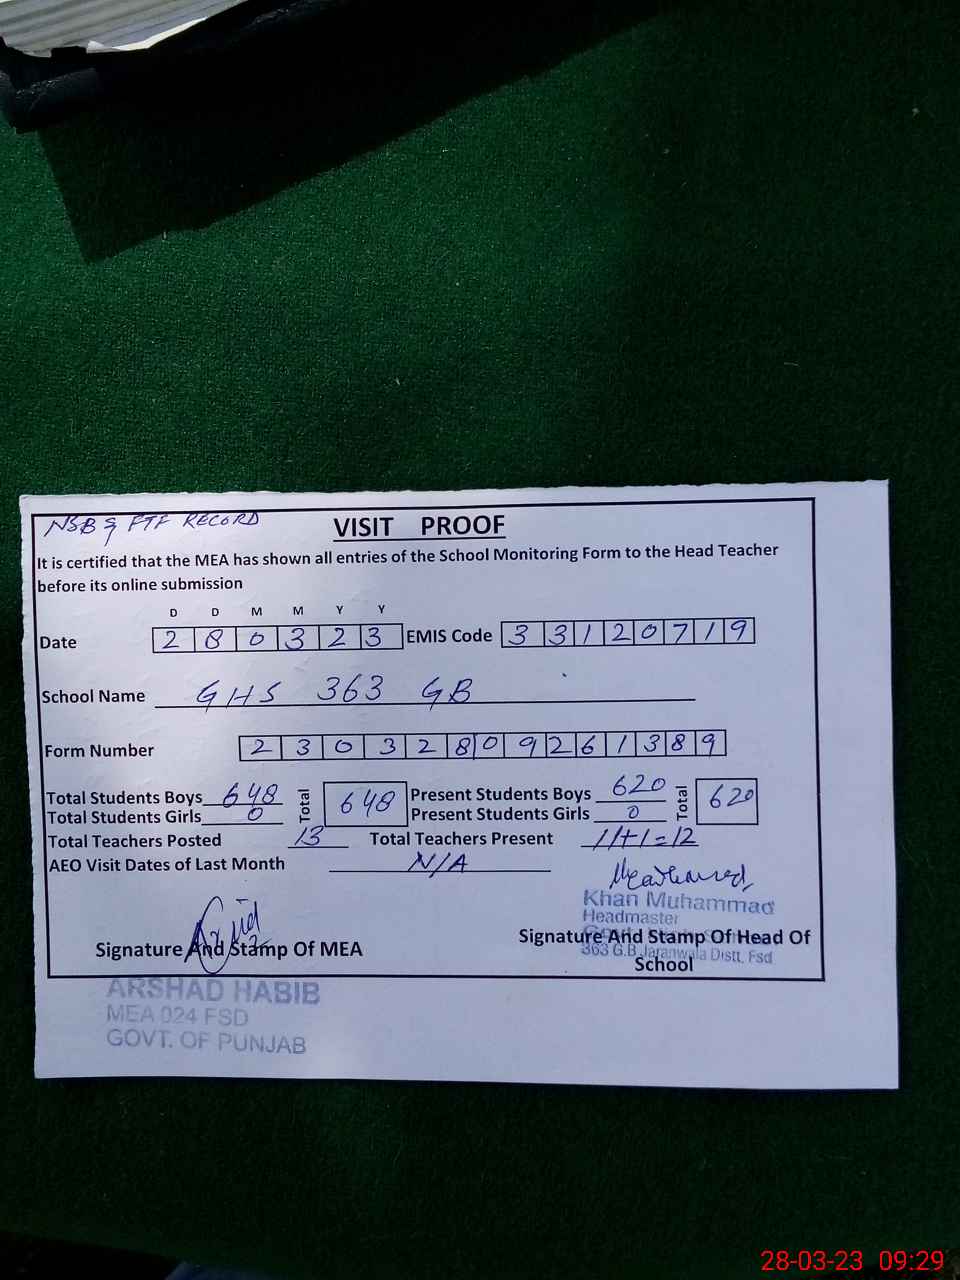 NSB & FTF RECORD
VISIT PROOF
It is certified that the MEA has shown all entries of the School Monitoring Form to the Head Teacher
before its online submission
D D M M Y Y
Date 2 8 0 3 2 3 EMIS Code 3 3 1 2 0 7 1 9
School Name GHS 363 GB
Form Number 2 3 0 3 2 8 0 9 2 6 1 3 8 9
Total Students Boys 648 Total 648 Present Students Boys 620 Total 620
Total Students Girls 0 Present Students Girls 0
Total Teachers Posted 13 Total Teachers Present 11+1=12
AEO Visit Dates of Last Month N/A
Khan Muhammad
Headmaster
Signature And Stamp Of MEA Signature And Stamp Of Head Of
School
363 G.B Jaranwala Distt. Fsd
ARSHAD HABIB
MEA 024 FSD
GOVT. OF PUNJAB
28-03-23 09:29